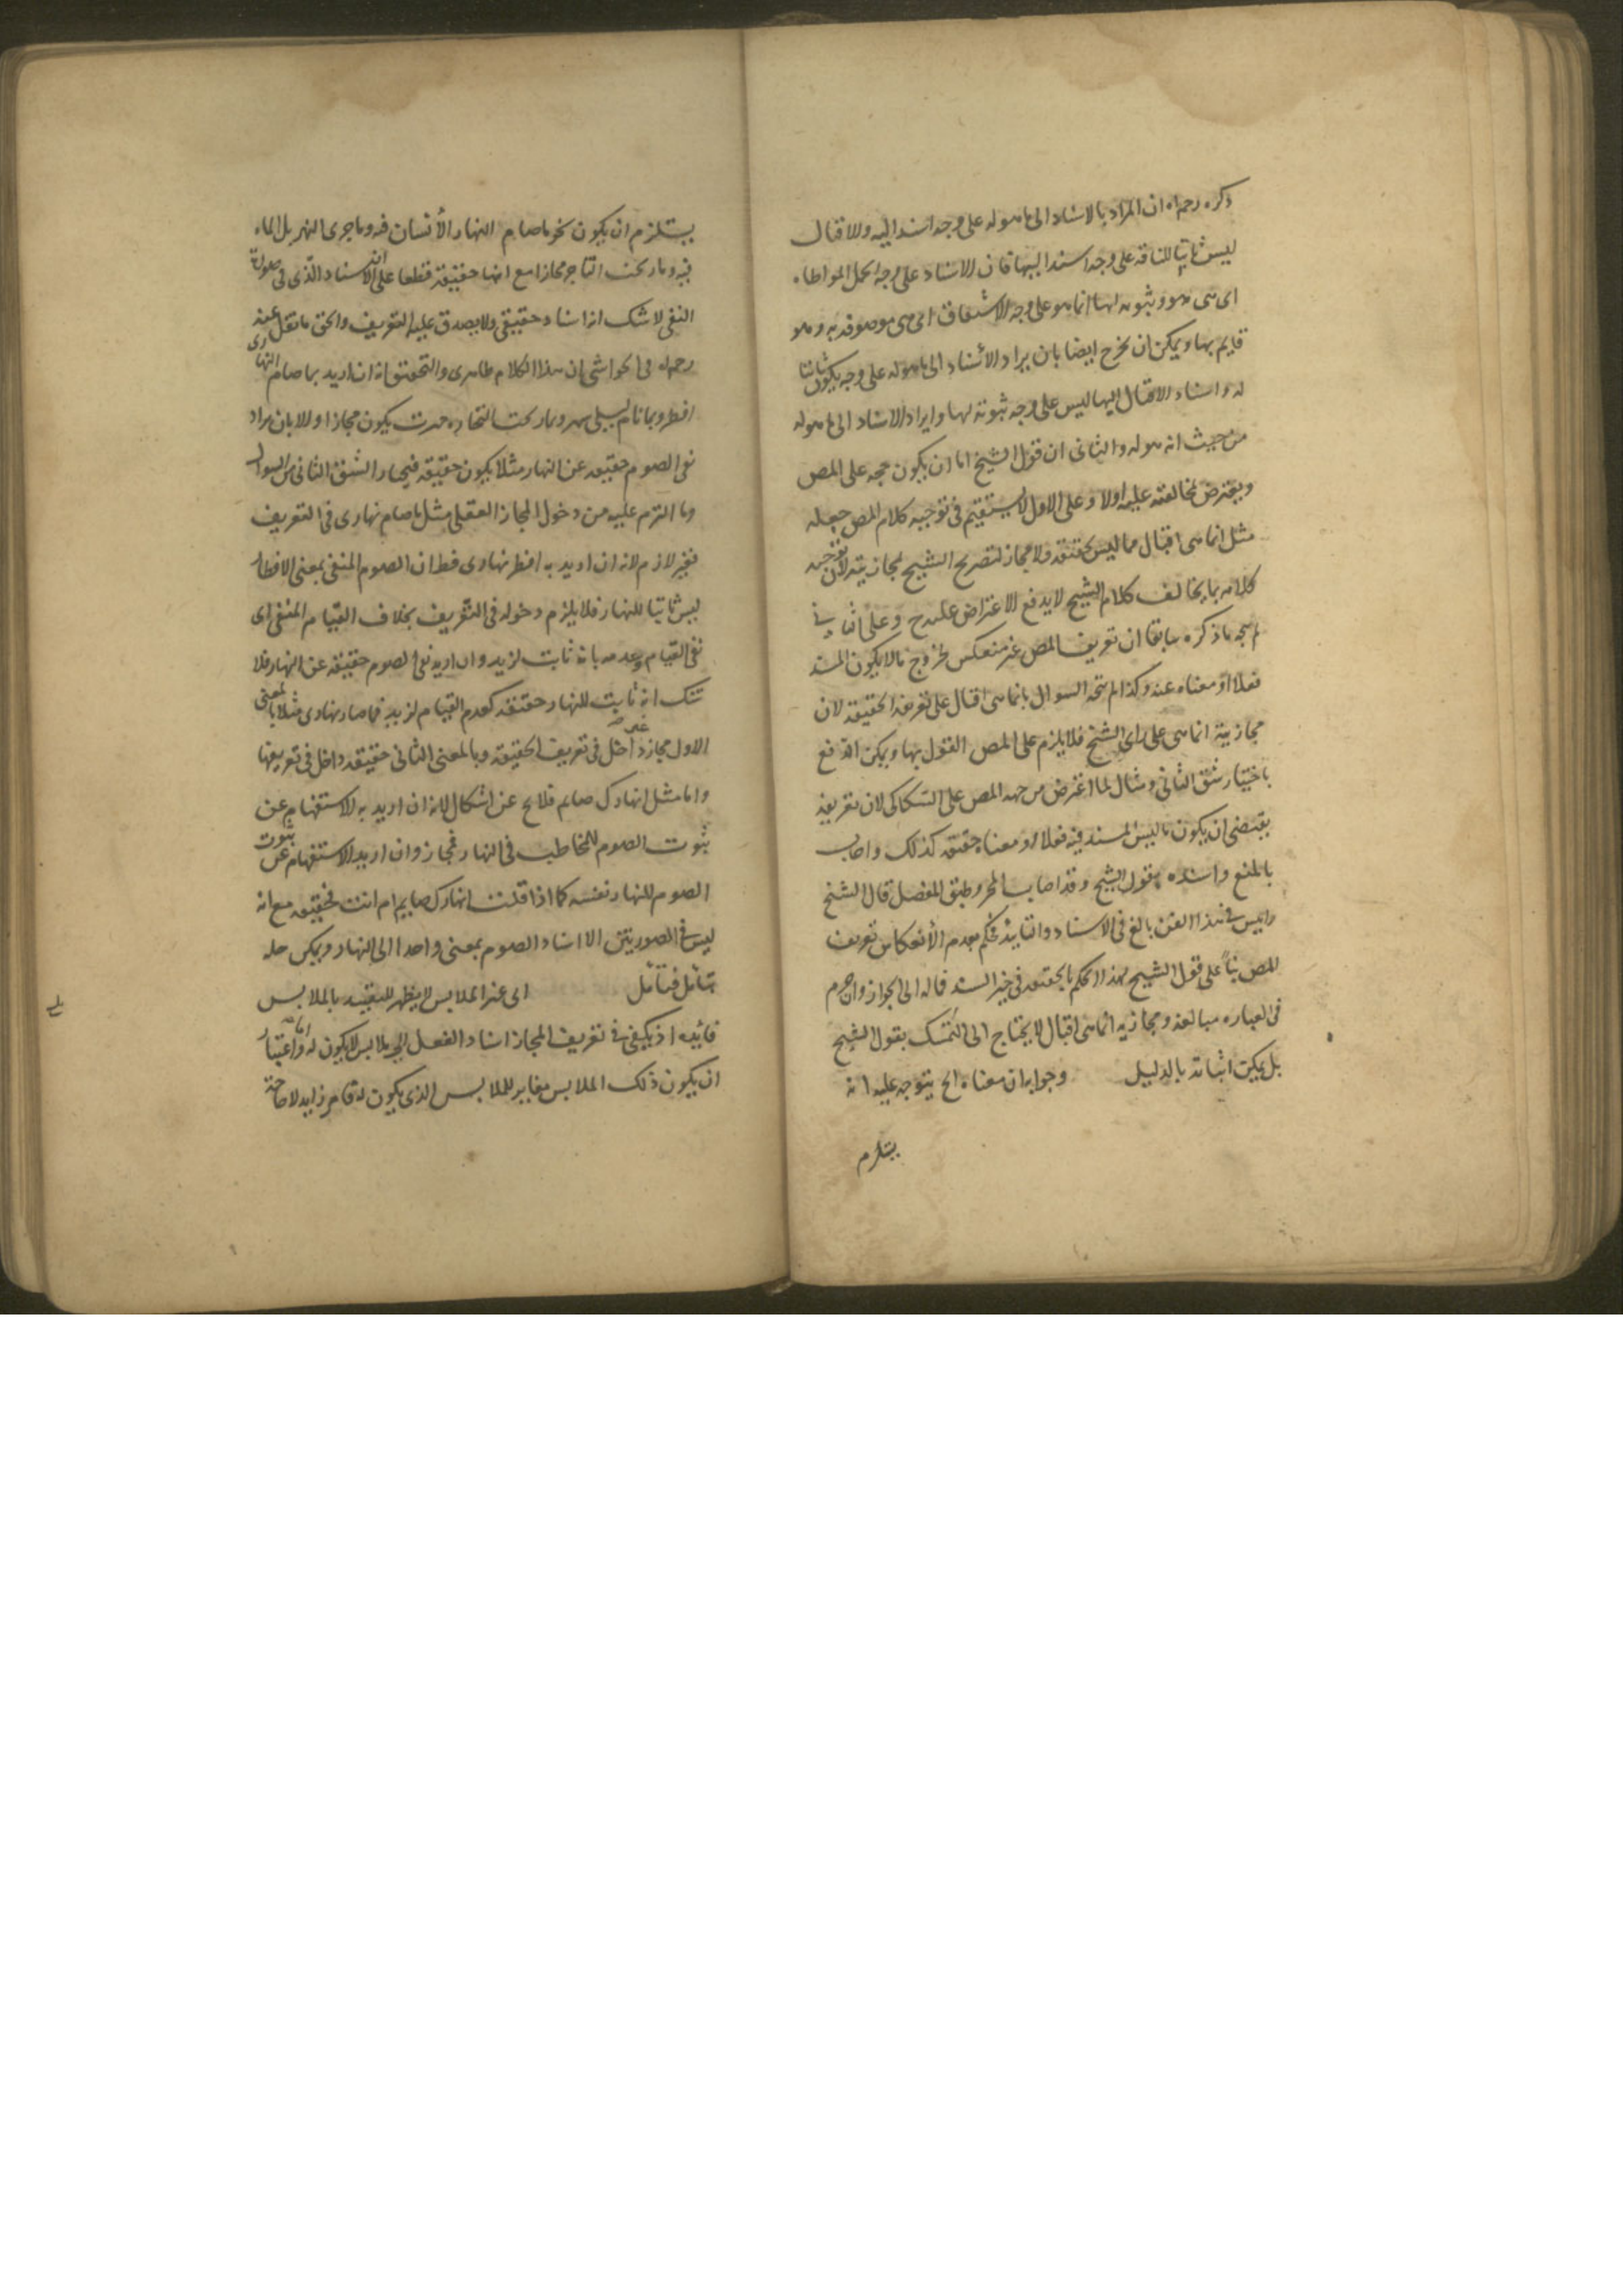 ذكره رحمه الله ان المراد بالاسناد الى ما هو له على وجه اسند اليه والاقبال
ليس ثابتا للناقة على وجه اسند اليها فان الاسناد على وجه الحمل المواطاه
اى هى هو وثبوته لها انما هو على وجه الاشتقاق اى هى موصوفه به وهو
قايم بها ويمكن ان يخرج ايضا بان يراد الاسناد الى ما هو له على وجه يكون ثابتا
له واسناد الاقبال اليها ليس على وجه ثبوته لها وايراد الاسناد الى ما هو له
من حيث انه هو له والثانى ان قول الشيخ اما ان يكون حجه على المص
ويعترض بمخالفته عليه اولا وعلى الاول لا يستقيم فى توجيه كلام المص جعله
مثل انما هى اقبال مما ليس بحقيقه ولا مجاز لتصريح الشيخ بمجازيته لان توجيه
كلامه بما يخالف كلام الشيخ لا يدفع الاعتراض عليه وعلى الثانى
لم يتجه ما ذكره سابقا ان تعريف المص غير منعكس لخروج ما لا يكون المسند
فعلا او معناه عنه وكذا لم يتجه السوال بانما هى اقبال على تعريف الحقيقه لان
مجازيته انما هى على راى الشيخ فلا يلزم على المص القول بها ويمكن الدفع
باختيار شق الثانى ومثال لما اعترض من جهه المص على السكاكى لان تعريفه
يقتضى ان يكون ما ليس المسند فيه فعلا او معناه حقيقه كذلك واجاب
بالمنع واسنده بقول الشيخ وقد اصاب المحز وطبق المفصل قال الشيخ
رئيس فى هذا الفن بالغ فى الاسناد والتاييد فحكم بعدم الانعكاس تعريف
للمص بناً على قول الشيخ بهذا الحكم بالحقيقه فى خبر السند فاله الى الجواز وان جزم
فى العباره مبالغه ومجازيه انما هى اقبال لا يحتاج الى التمسك بقول الشيخ
بل يمكن اثباته بالدليل وجوابه ان معناه الخ يتوجه عليه انه
يستلزم
يستلزم ان يكون نحو ما صام النهار الانسان فيه وما جرى النهر بل الماء
فيه وما ربحت التاجر مجازا مع انها حقيقة قطعا على ان الاسناد الذى فى صورة
النفى لا شك انه اسناد حقيقى ولا يصدق عليه التعريف والحق ما نقل عنه
رحمه الله فى الحواشى ان هذا الكلام ظاهرى والتحقيق انه ان اريد بما صام النهارى
افطر وبما نام ليلى سهر وبما ربحت التجاره خسرت يكون مجازا والا بان يراد
نفى الصوم حقيقه عن النهار مثلا يكون حقيقه فيختار الشق الثانى من السوال
وما التزم عليه من دخول المجاز العقلى مثل ما صام نهارى فى التعريف
فغير لازم لانه ان اريد به افطر نهارى فظ ان الصوم المنفى بمعنى الافطار
ليس ثابتا للنهار فلا يلزم دخوله فى التعريف بخلاف القيام المنفى اى
نفى القيام وعدمه بانه ثابت لزيد وان اريد نفى الصوم حقيقه عن النهار فلا
شك انه ثابت للنهار حقيقه كعدم القيام لزيد فما صام نهارى مثلا بالمعنى
الاول مجاز غير داخل فى تعريف الحقيقه وبالمعنى الثانى حقيقه داخل فى تعريفها
واما مثل انهارك صايم فلا يخ عن اشكال لانه ان اريد به الاستفهام عن
ثبوت الصوم للمخاطب فى النهار فمجاز وان اريد الاستفهام عن ثبوت
الصوم للنهار نفسه كما اذا قلت انهارك صايم ام انت فحقيقه مع انه
ليس فى الصورتين الا اسناد الصوم بمعنى واحد الى النهار ويمكن حله
بتامل فتامل الى غير الملابس لا يظهر للتقييد بالملابس
فائيده اذ يكفى فى تعريف المجاز اسناد الفعل الى ملابس لا يكون له واما اعتبار
ان يكون ذلك الملابس مغاير للملابس الذى يكون له فامر زايد لا حاجة